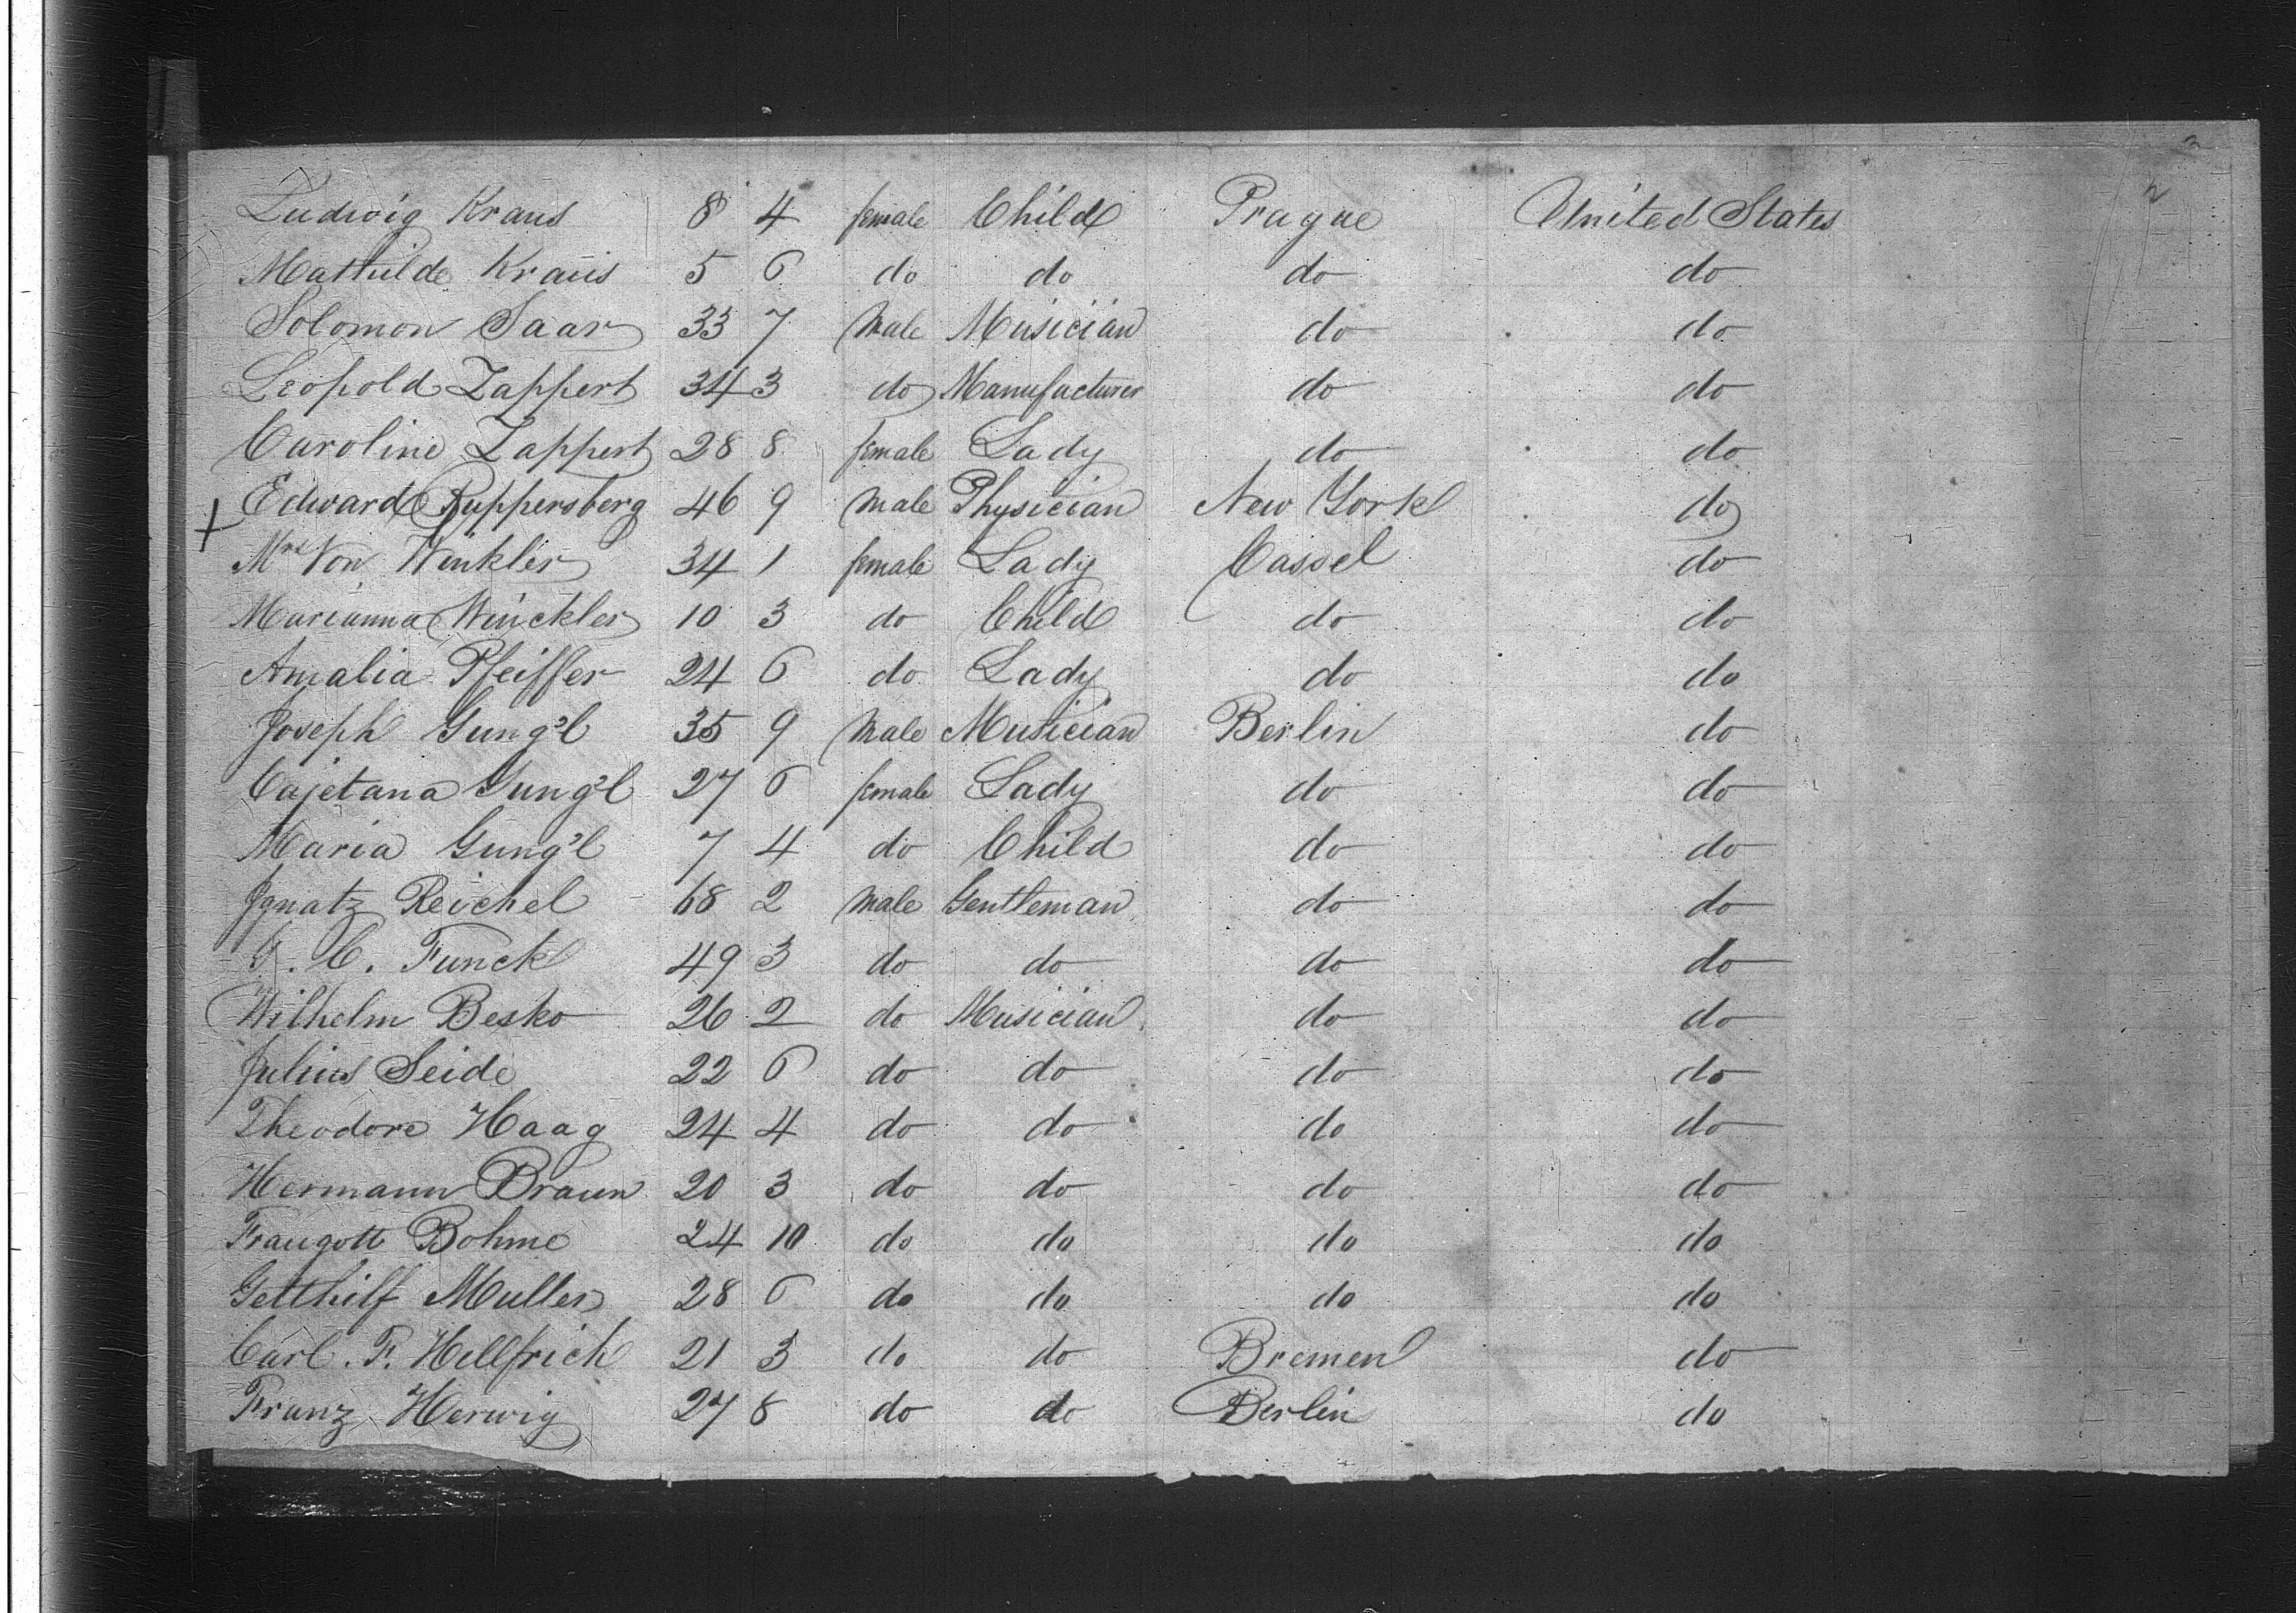 3
2
Ludwig Kraus 8 4 female Child Prague United States
Mathilde Kraus 5 6 do do do do
Solomon Saar 33 7 Male Musician do do
Leopold Zappert 34 3 do Manufacturer do do
Caroline Zappert 28 8 female Lady do do
Edward Ruppersberg 46 9 Male Physician New York do
+ Mrs Von Winkler 34 1 female Lady Cassel do
Marianna Winckler 10 3 do Child do do
Amalia Pfeiffer 24 6 do Lady do do
Joseph Gung'l 35 9 Male Musician Berlin do
Cajetana Gung'l 27 6 female Lady do do
Maria Gung'l 7 4 do Child do do
Ignatz Reichel 68 2 Male Gentleman do do
C. Funck 49 3 do do do do
Wilhelm Besko 26 2 do Musician do do
Julius Seide 22 6 do do do do
Theodore Haag 24 4 do do do do
Hermann Braun 20 3 do do do do
Traugott Bohme 24 10 do do do do
Getthilf Muller 28 6 do do do do
Carl. F. Hellfrich 21 3 do do Bremen do
Franz Herwig 27 8 do do Berlin do